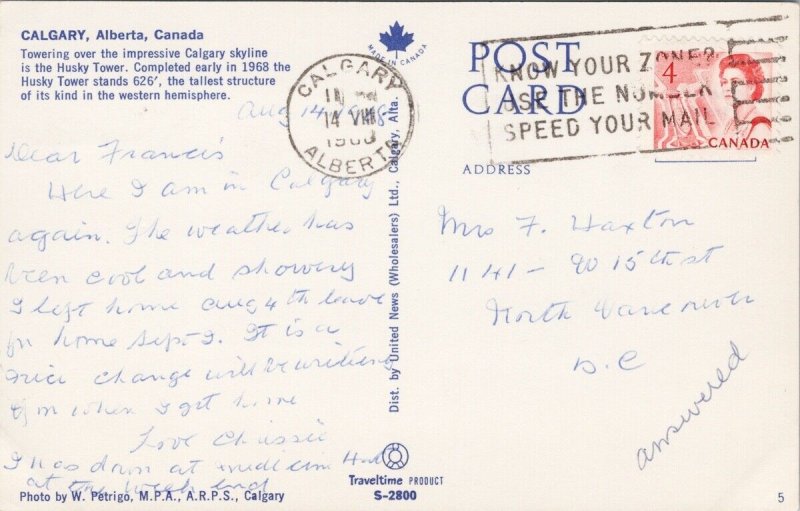 CALGARY, Alberta, Canada
Towering over the impressive Calgary skyline
is the Husky Tower. Completed early in 1968 the
Husky Tower stands 626', the tallest structure
of its kind in the western hemisphere.
Aug 14
Dear Francis
Here I am in Calgary
again. The weather has
been cool and showery
I left home Aug 4th leave
for home Sept 2. It is a
nice change will be writing
when I get home
Love Chissie
I was down at Medicine Hat
at the week end
Photo by W. Petrigo, M.P.A., A.R.P.S., Calgary
MADE IN CANADA
CALGARY
14 VIII
ALBERTA
Dist. by United News (Wholesalers) Ltd., Calgary, Alta.
Traveltime PRODUCT
S-2800
POST
CARD
KNOW YOUR ZONE?
USE THE NUMBER
SPEED YOUR MAIL
4
CANADA
ADDRESS
Mrs F. Haxton
1141 - 15th st
North Vancouver
B.C
answered
5